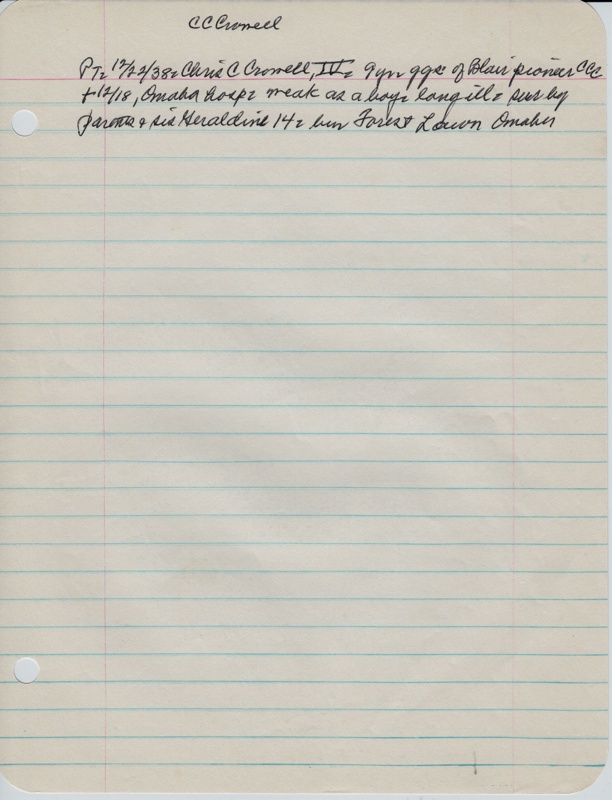 CC Crowell
PT: 12/22/38: Chris C Crowell, IV: 9 yr ggs of Blair pioneer CCC
+ 12/18, Omaha hosp: weak as a boy: long ill: sur by
parents & sis Geraldine 14: bur Forest Lawn Omaha